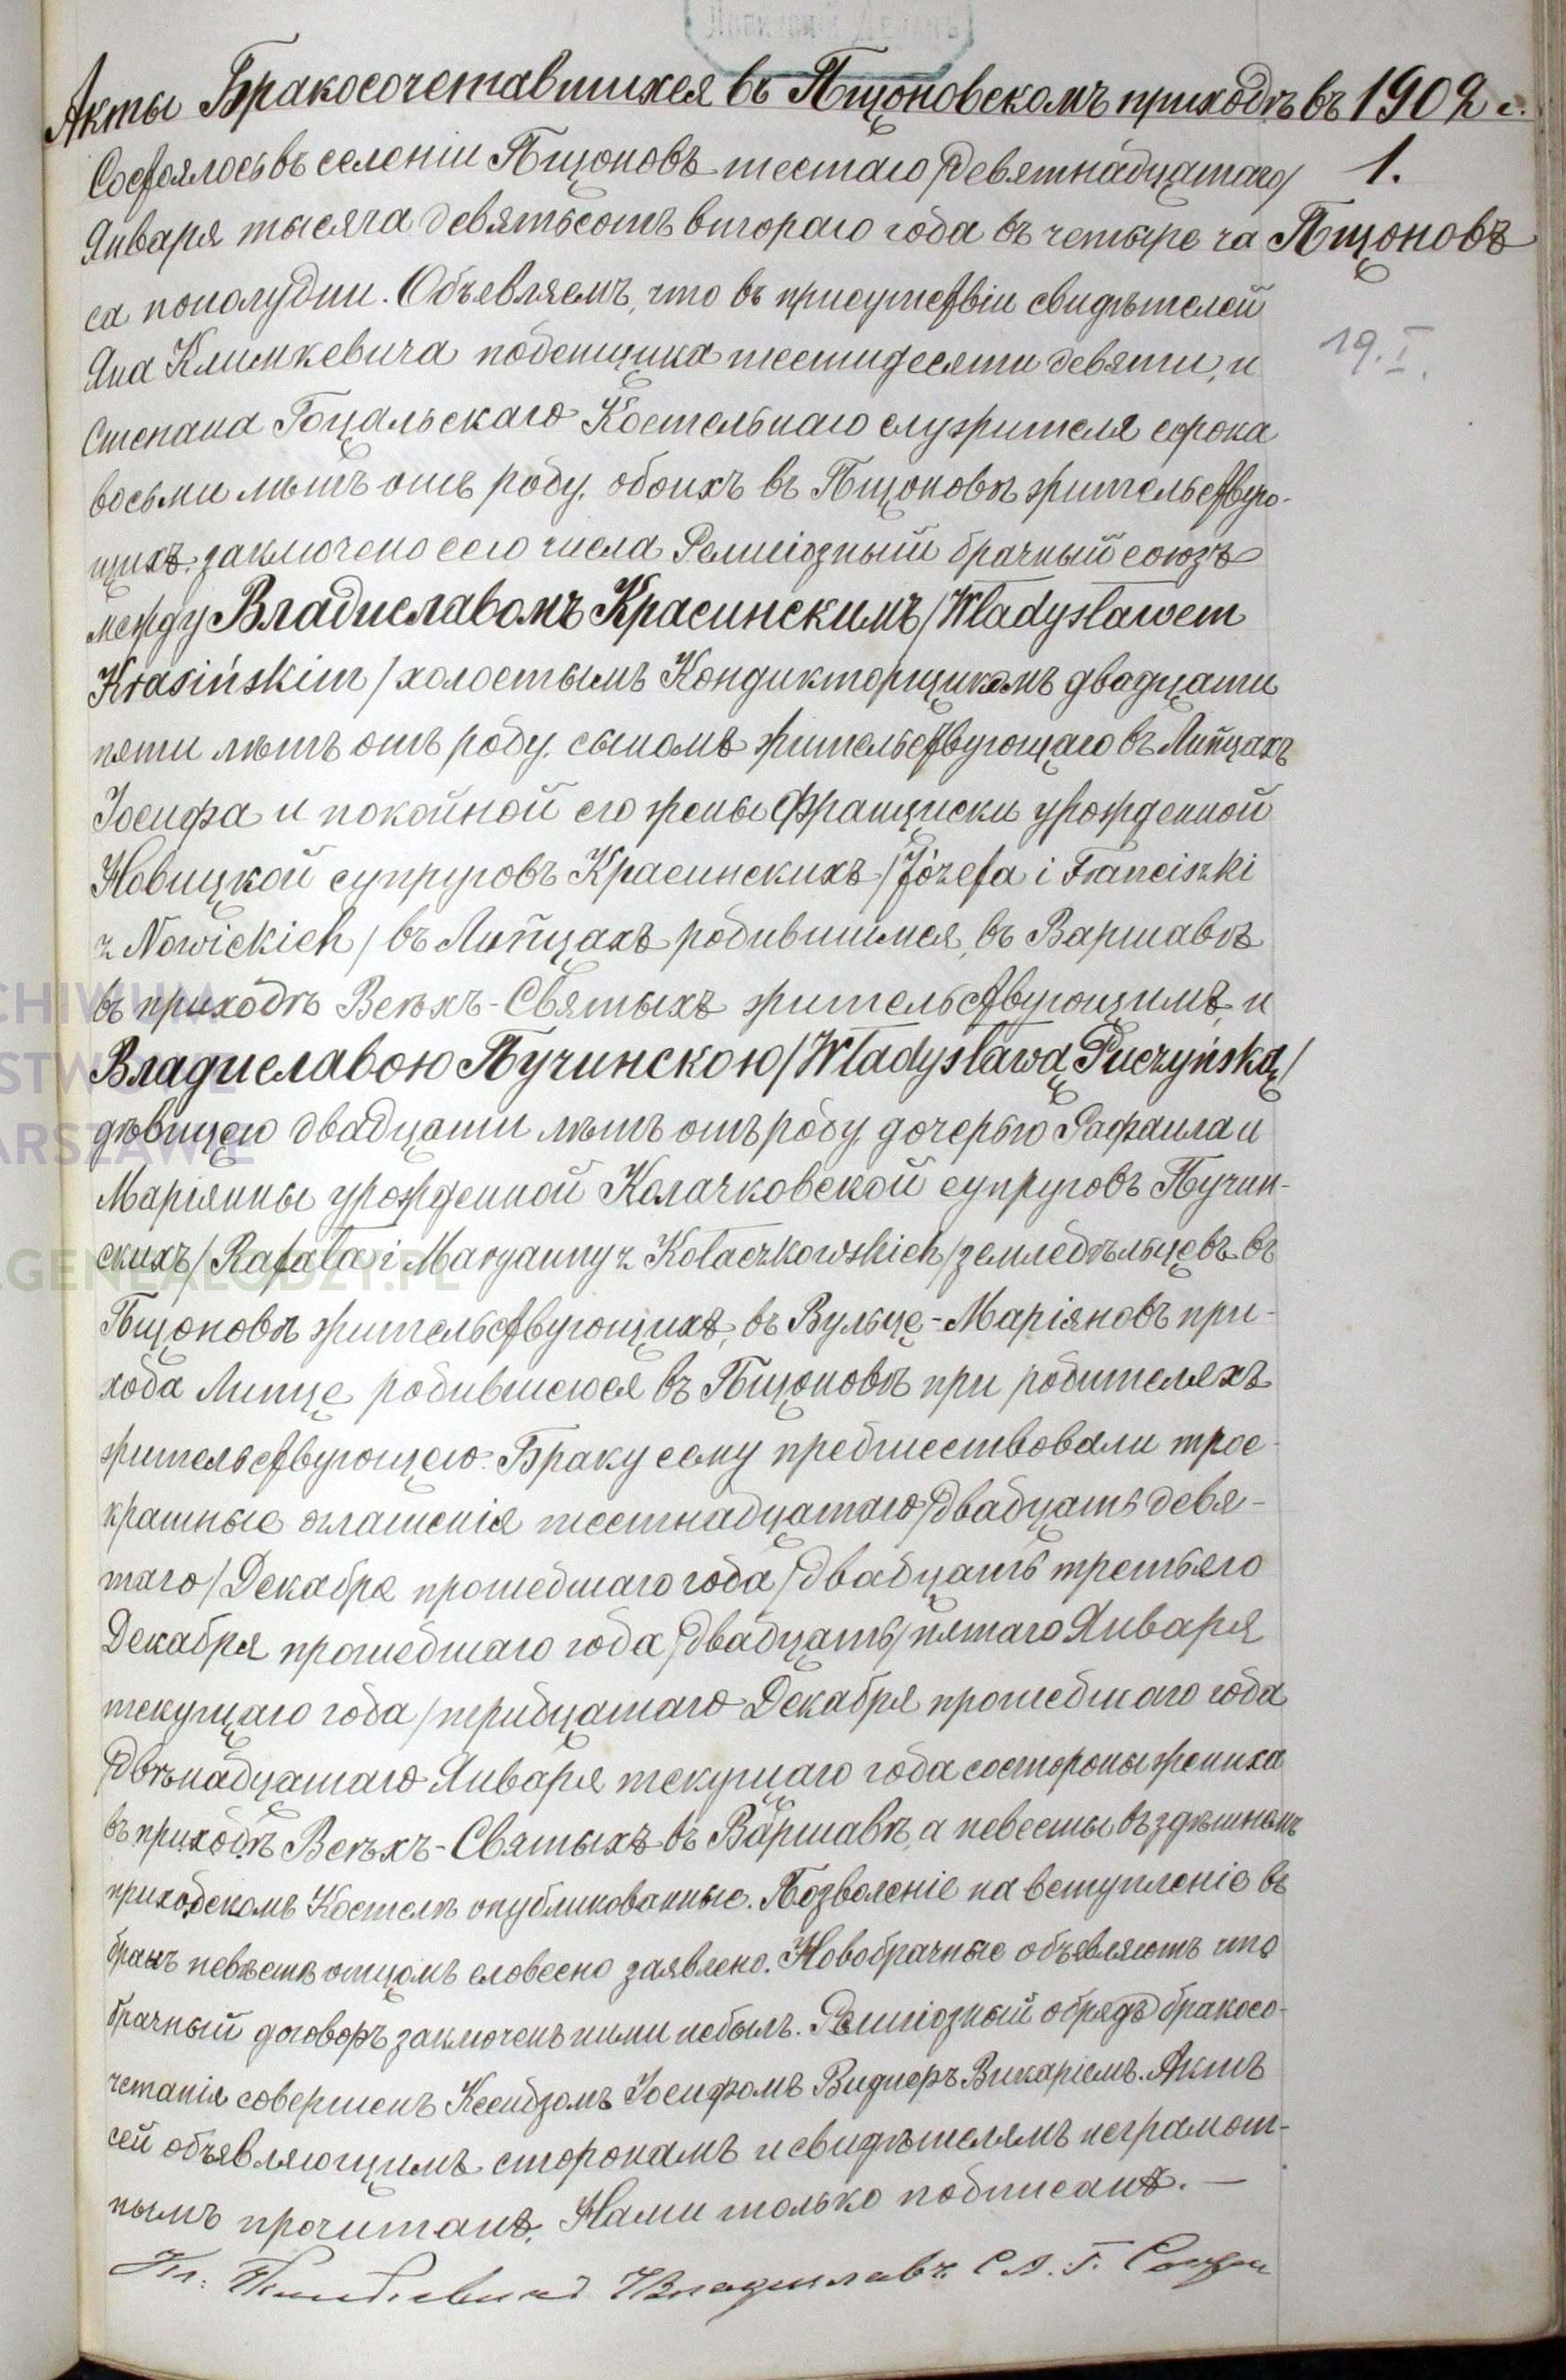 Акты Бракосочетавшихся въ Пщоновскомъ приходѣ въ 1902 г.
1.
Пщоновъ
19.I.
Состоялось въ селеніи Пщоновъ шестаго /девятнадцатаго/
Января тысяча девятьсотъ втораго года въ четыре ча
са пополудни. Объявляемъ, что въ присутствіи свидѣтелей
Яна Климкевича поденщика шестидесяти девяти, и
Степана Гоцальскаго Костельнаго служителя сорока
восьми лѣтъ отъ роду, обоихъ въ Пщоновѣ жительствую-
щихъ, заключено сего числа Религіозный брачный союзъ
между Владиславомъ Красинскимъ /Władysławem
Krasińskim/ холостымъ Кондикторщикомъ двадцати
пяти лѣтъ отъ роду, сыномъ жительствующаго въ Липцахъ
Іосифа и покойной его жены Францишки урожденной
Новицкой супруговъ Красинскихъ /Józefa i Franciszki
z Nowickich/ въ Липцахъ родившимся, въ Варшавѣ
въ приходѣ Всѣхъ-Святыхъ жительствующимъ, и
Владиславою Пучинскою /Władysławą Puczyńską/
дѣвицею двадцати лѣтъ отъ роду, дочерью Рафаила и
Маріянны урожденной Колачковской супруговъ Пучин-
скихъ /Rafała i Maryanny z Kołaczkowskich/ земледѣльцевъ въ
Пщоновѣ жительствующихъ, въ Вульце-Маріяновъ при-
хода Липце родившеюся въ Пщоновѣ при родителяхъ
жительствующею. Браку сему предшествовали трое-
кратные оглашенія шестнадцатаго /двадцать девя-
таго/ Декабря прошедшаго года, /двадцать третьяго
Декабря прошедшаго года /двадцать/ пятаго Января
текущаго года /тридцатаго Декабря прошедшаго года
/двѣнадцатаго Января текущаго года состороны жениха
въ приходѣ Всѣхъ-Святыхъ въ Варшавѣ, а невесты въ здѣшнемъ
приходскомъ Костелѣ опубликованные. Позволеніе на вступленіе въ
бракъ невѣстѣ отцомъ словесно заявлено. Новобрачные объявляютъ что
брачный договоръ заключенъ ними небылъ. Религіозный обрядъ бракосо-
четанія совершенъ Ксендзомъ Іосифомъ Виднеръ Викаріемъ. Актъ
сей объявляющимъ сторонамъ и свидѣтелямъ неграмот-
нымъ прочитанъ, Нами только подписанъ. —